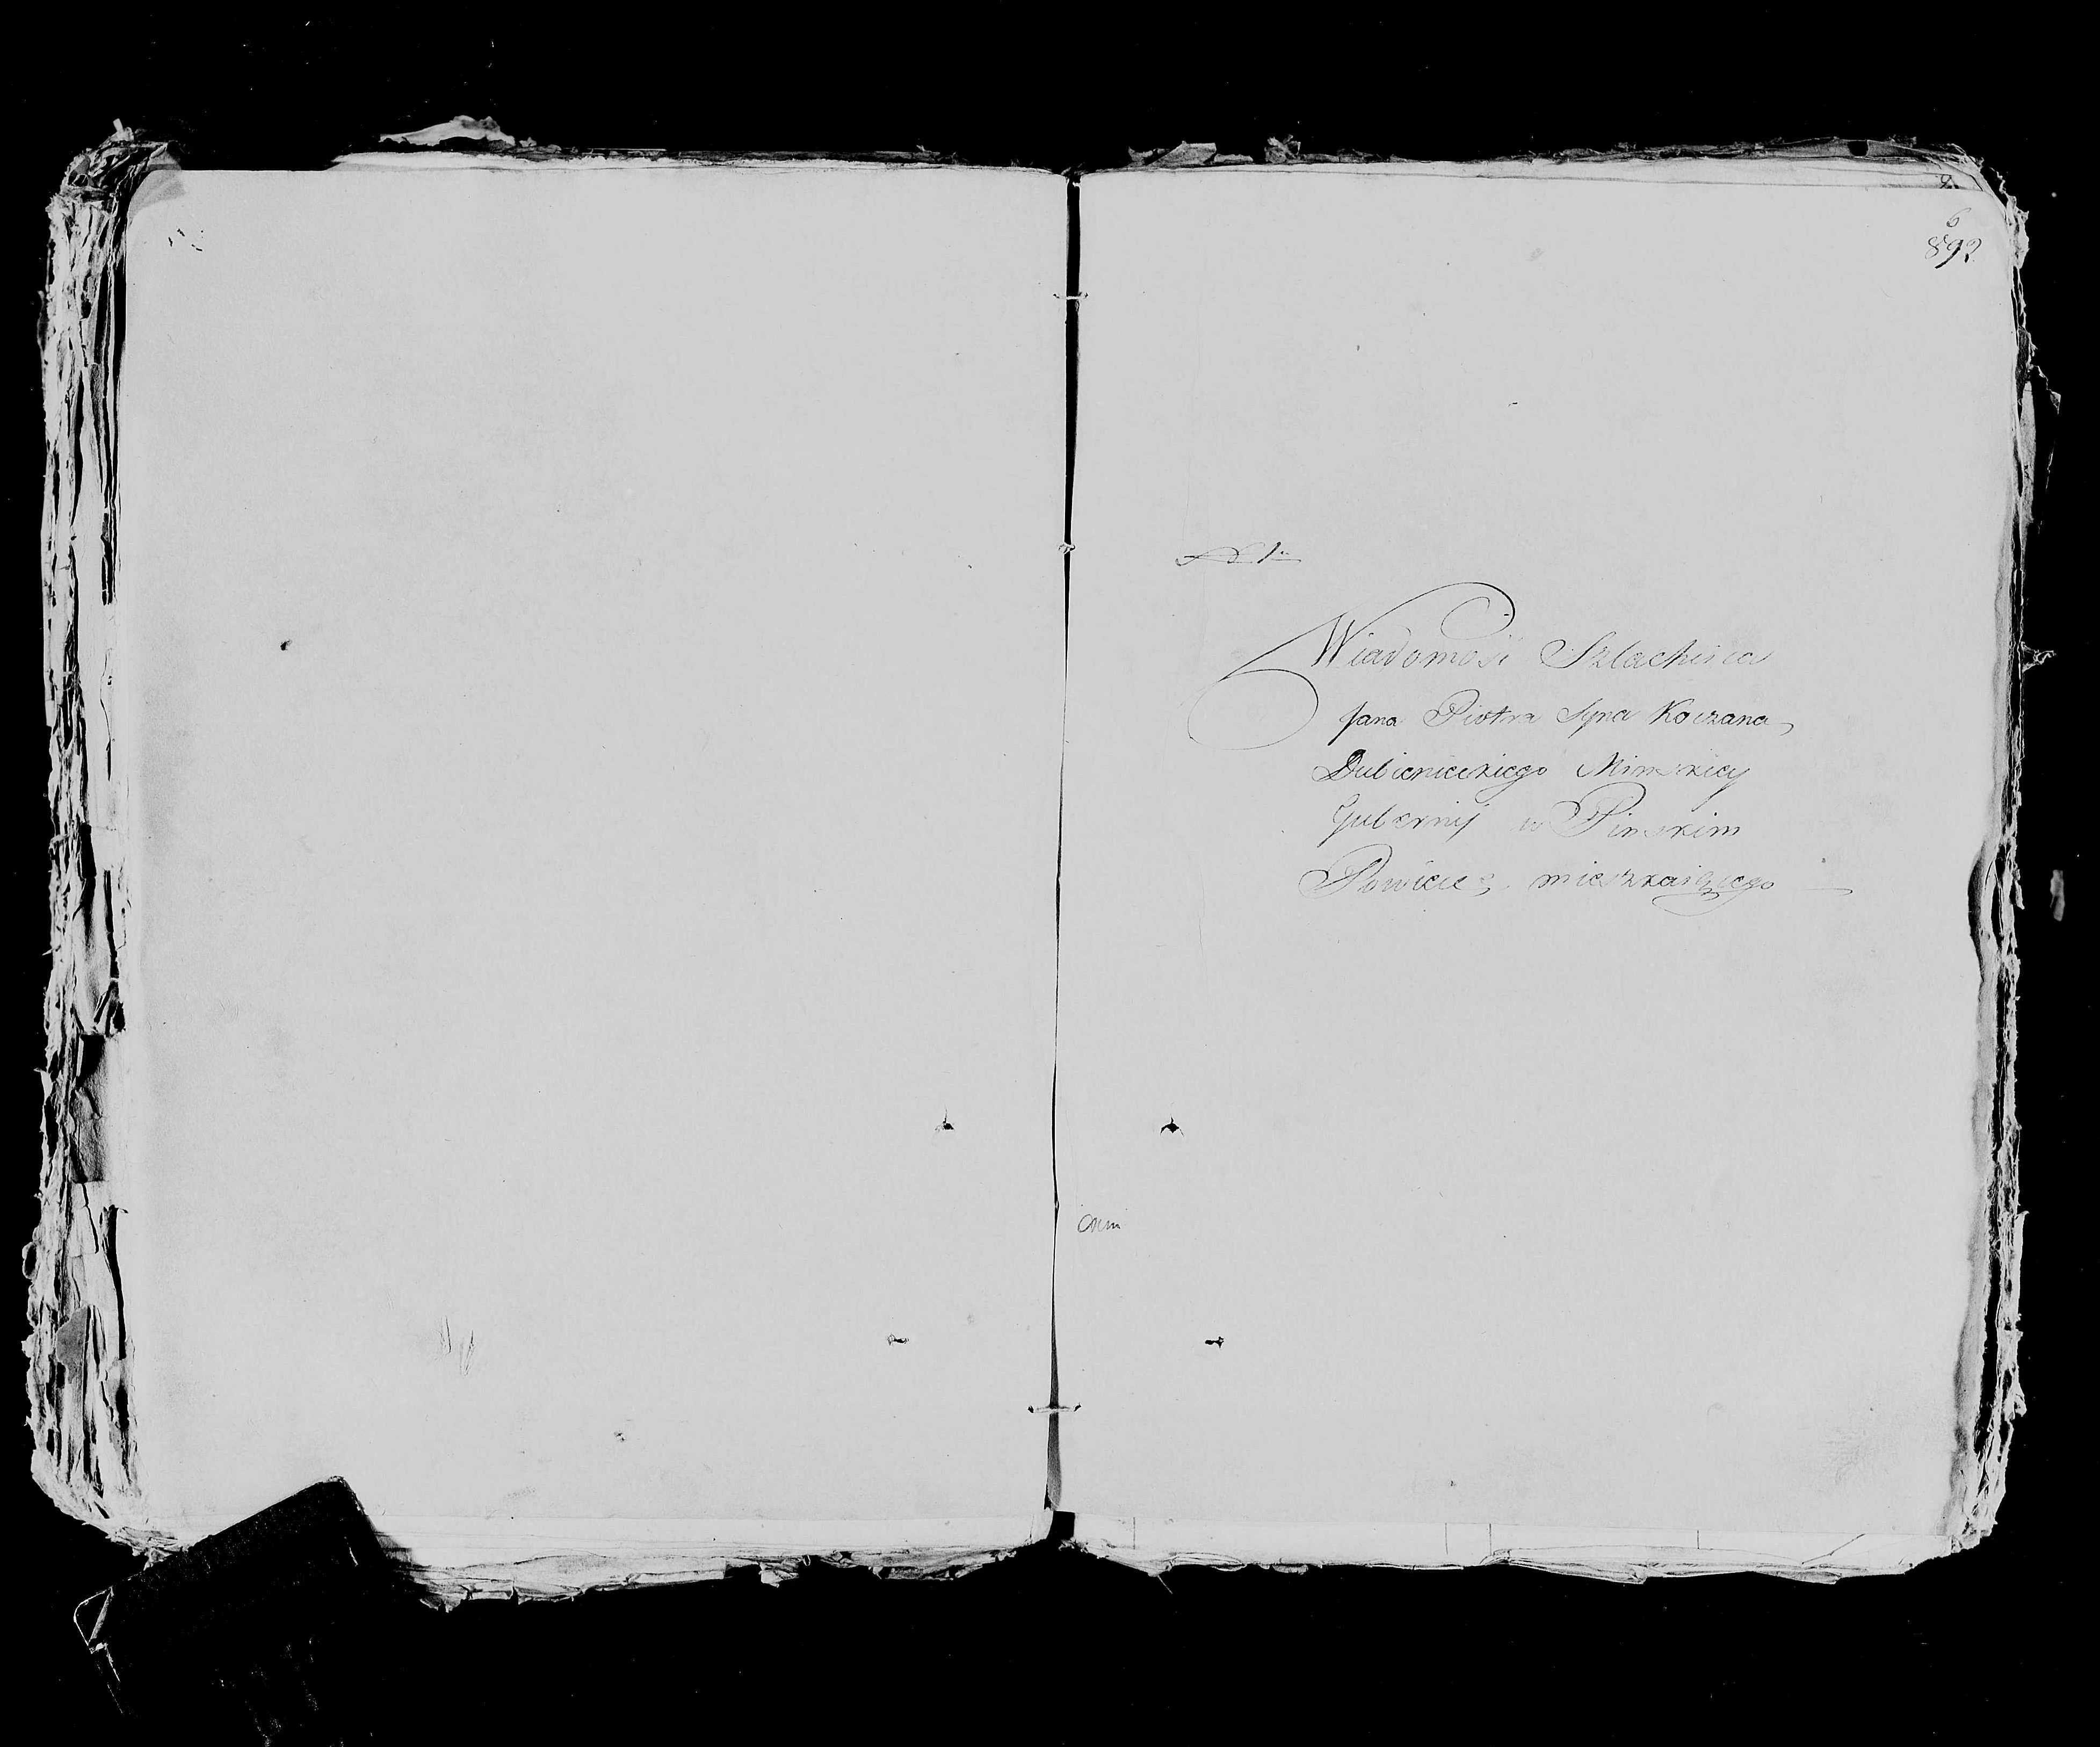 6
892
№ 1
Wiadomość Szlachcica
Jana Piotra Syna Koczana
Dubienieckiego Minskiey
Gubernij w Pinskim
Powiecie mieszkaiącego